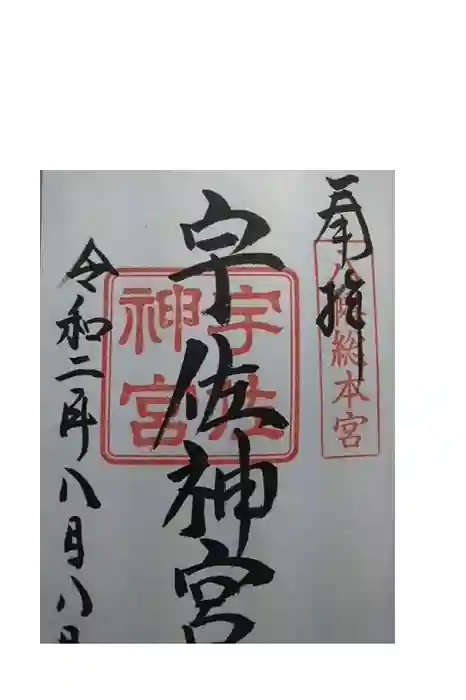 奉拝
八幡総本宮
宇佐神宮
宇佐神宮
令和二年八月八日